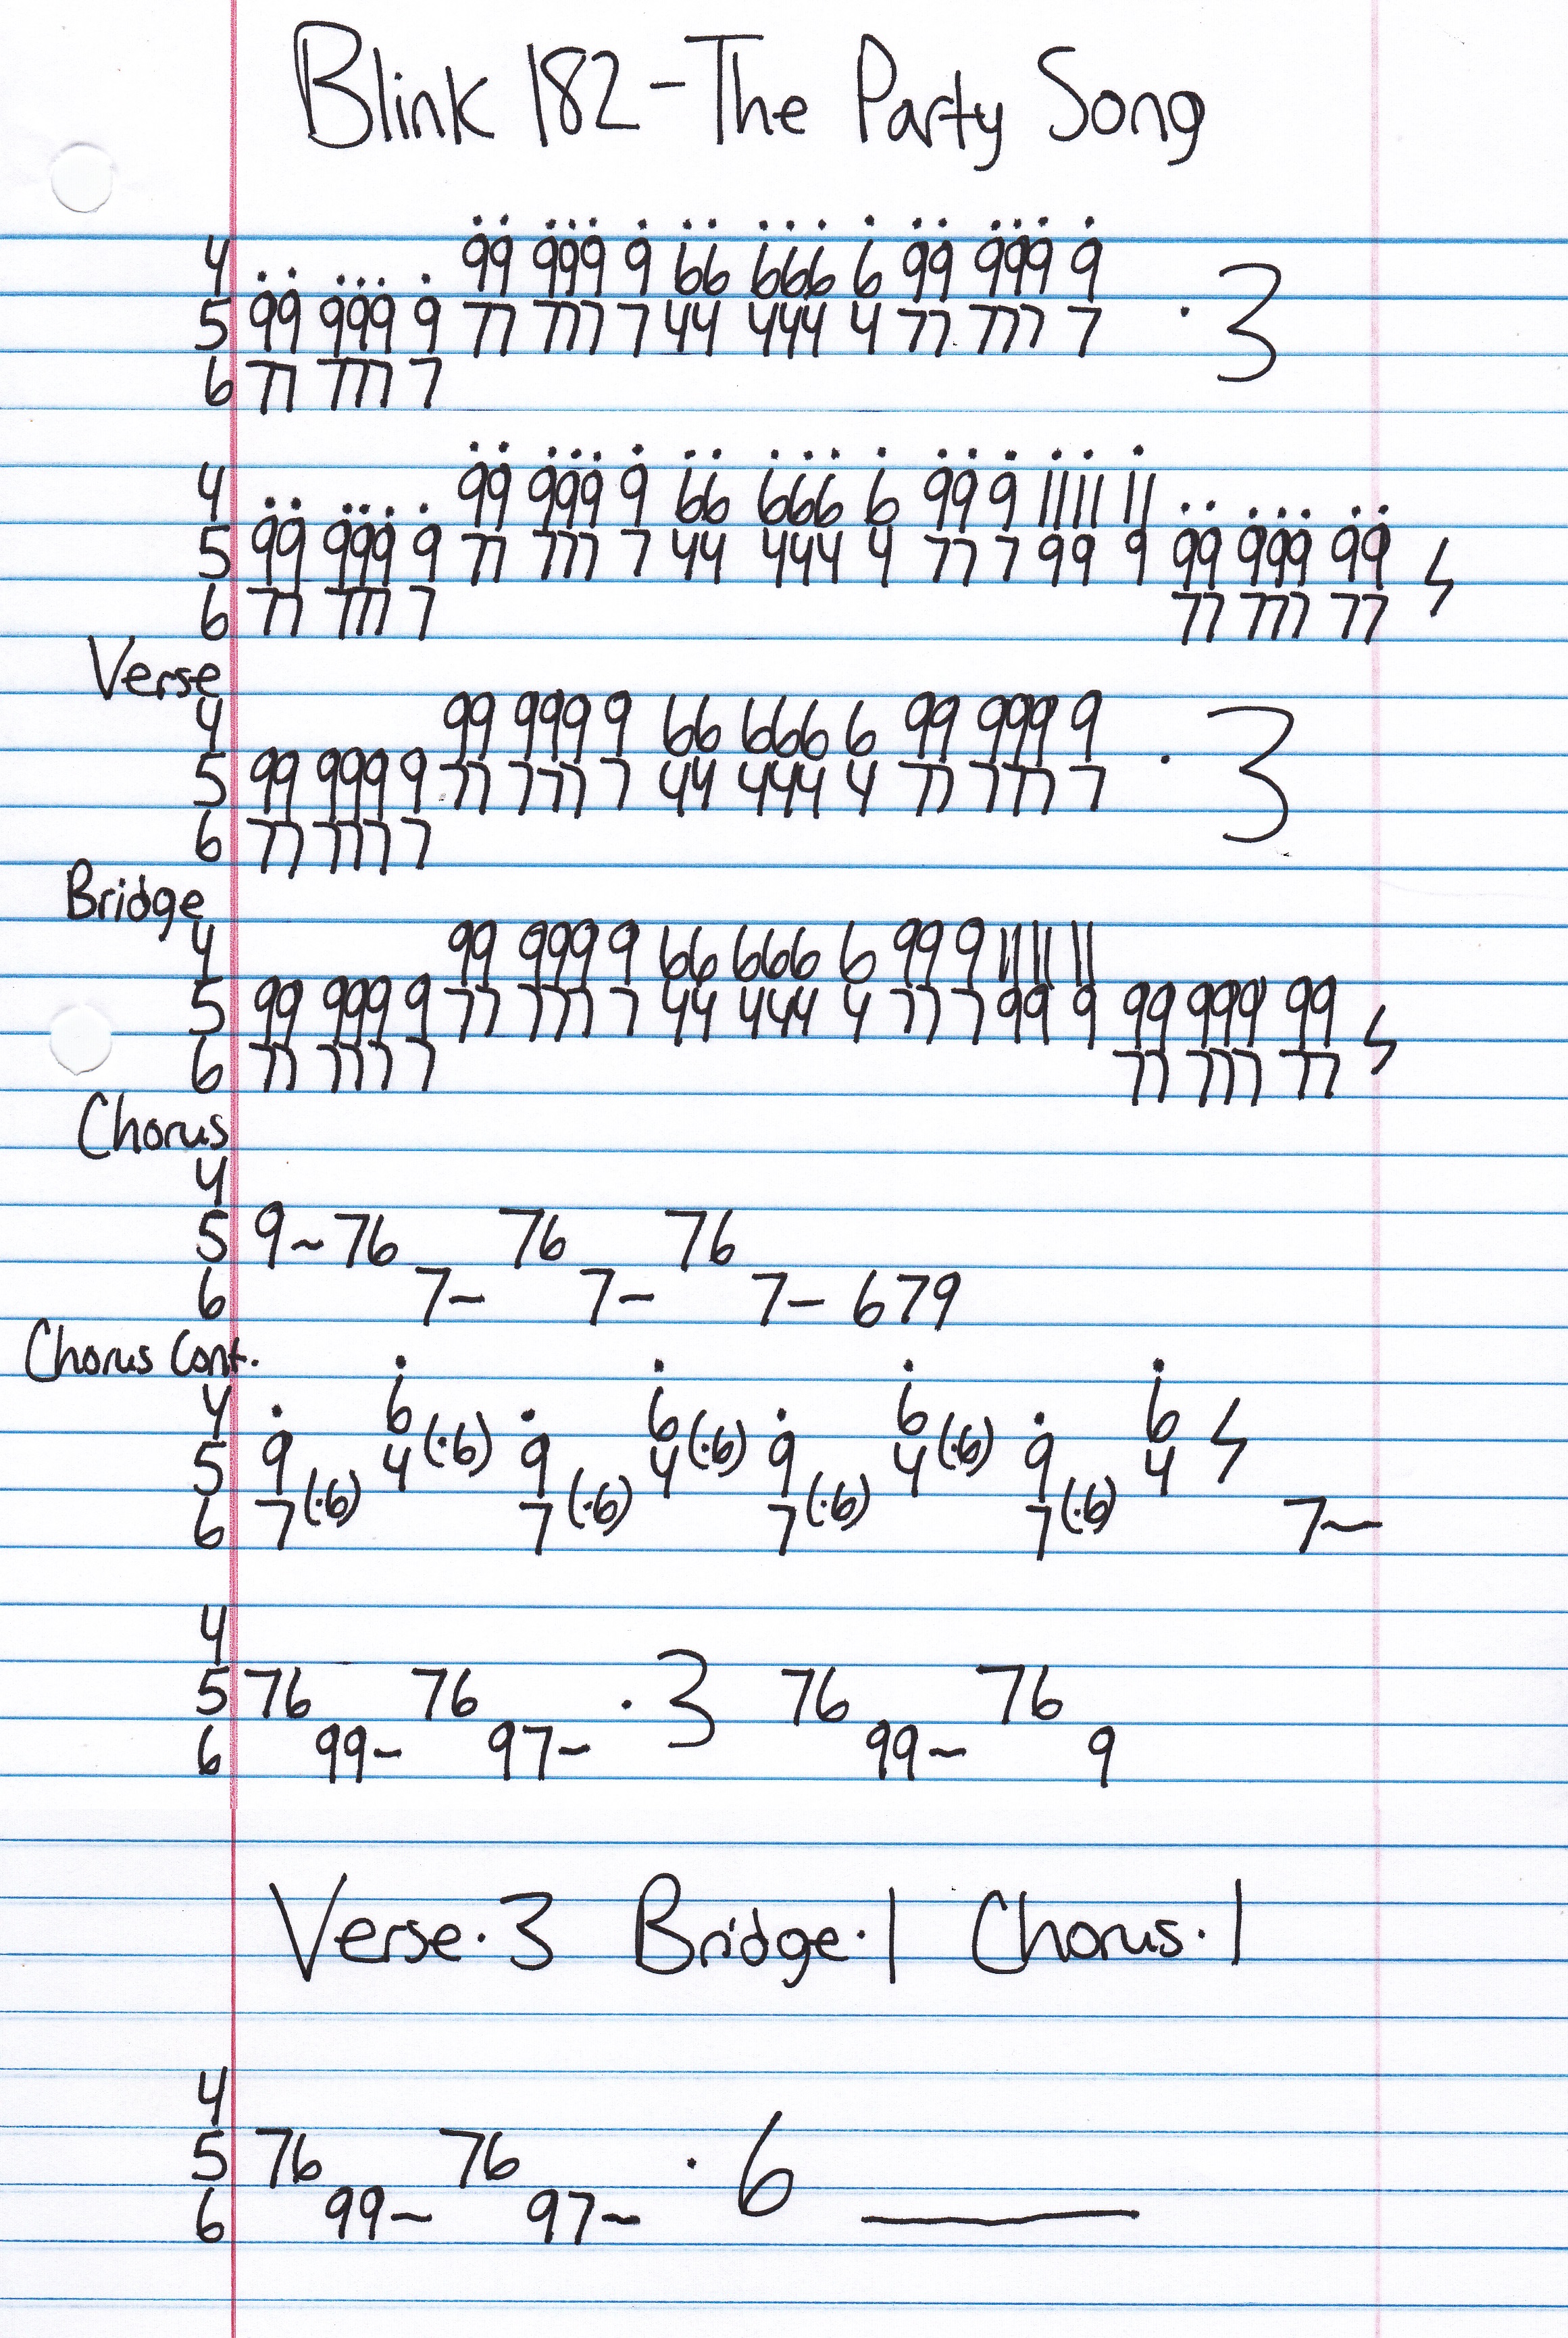 Blink 182 - The Party Song
4 99 999 9 66 666 6 99 999 9
5 99 999 9 77 777 7 44 444 4 77 777 7 · 3
6 77 777 7
4 99 999 9 66 666 6 99 9 11 11 11
5 99 999 9 77 777 7 44 444 4 77 7 99 9 99 999 99
6 77 777 7 77 777 77
Verse
4 99 999 9 66 666 6 99 999 9
5 99 999 9 77 777 7 44 444 4 77 777 7 · 3
6 77 777 7
Bridge
4 99 999 9 66 666 6 99 9 11 11 11
5 99 999 9 77 777 7 44 444 4 77 7 99 9 99 999 99
6 77 777 7 77 777 77
Chorus
4
5 9~76 76 76
6 7- 7- 7- 679
Chorus Cont.
4 6 6 6 6
5 9 4 (·6) 9 4 (·6) 9 4 (·6) 9 4
6 7 (·6) 7 (·6) 7 (·6) 7 (·6) 7~
4
5 76 76 · 3 76 76
6 99~ 97~ 99~ 9
Verse·3 Bridge·1 Chorus·1
4
5 76 76 · 6
6 99~ 97~